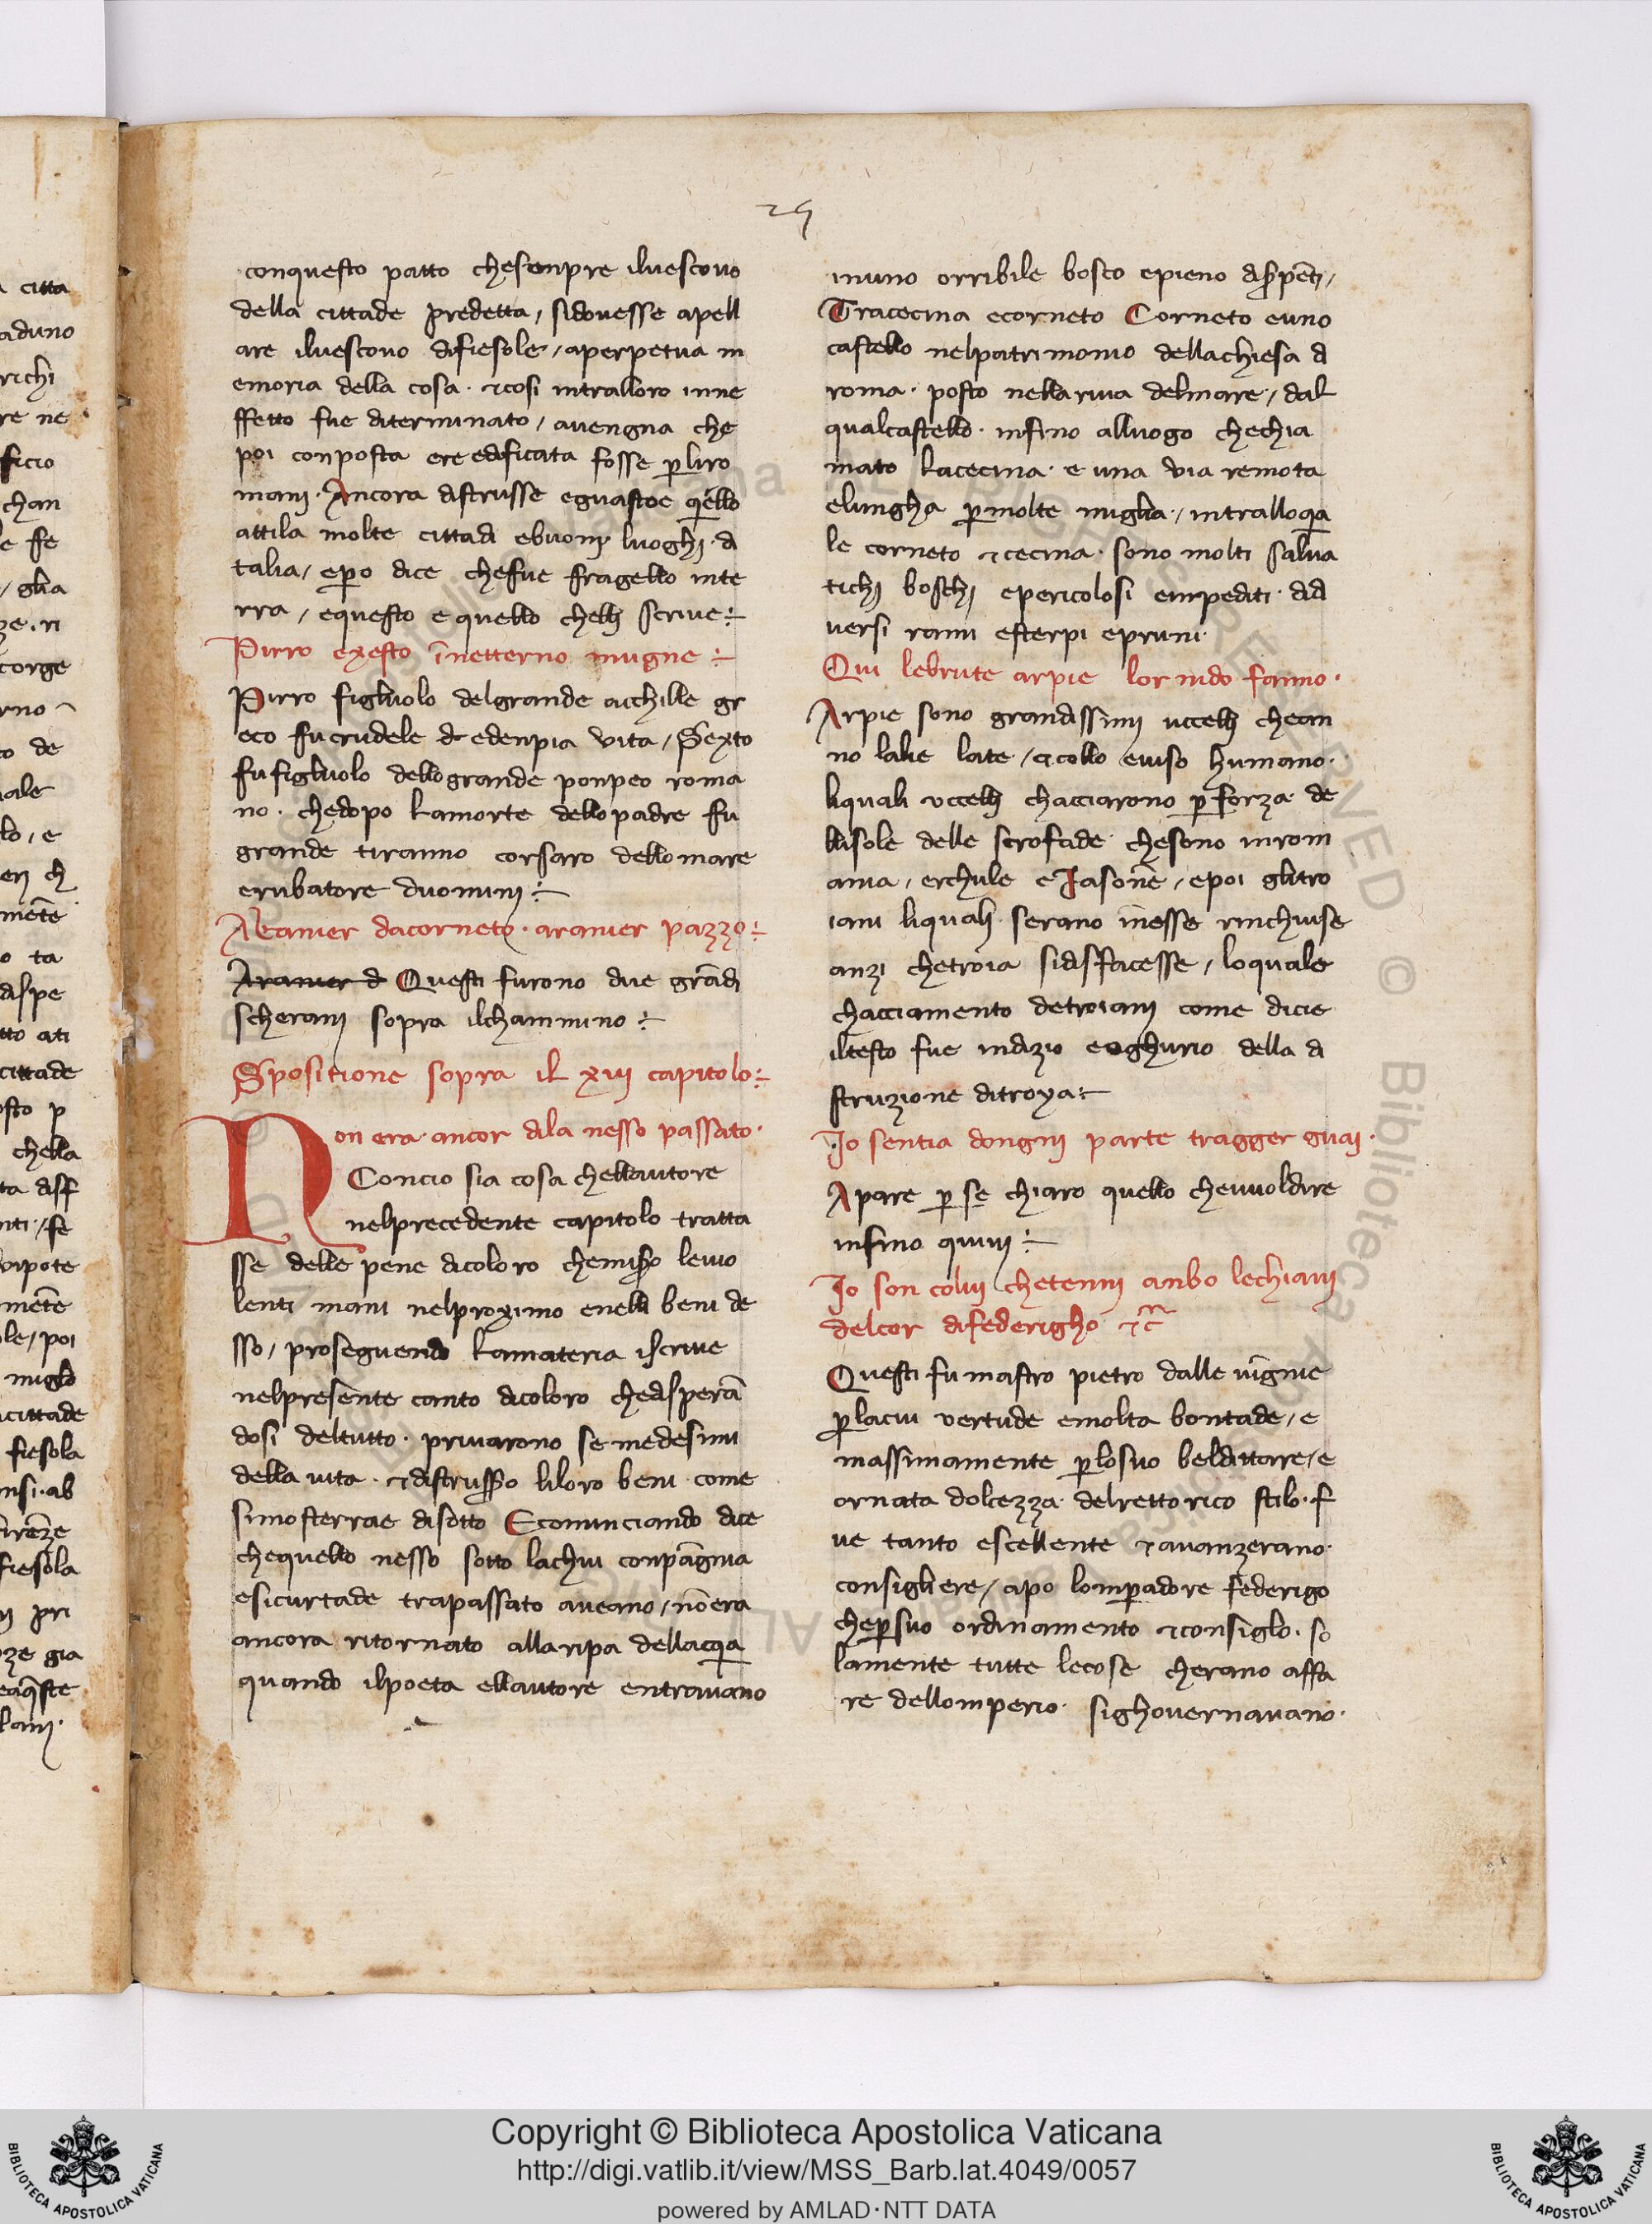 29
conquesto patto chesenpre iluescouo
della cittade predetta, sidouesse apell
are iluescouo difiesole, aperpetua m
emoria della cosa. ⁊cosi intralloro inne
ffetto fue diterminato, auengna che
poi conposta ere edificata fosse ꝑliro
mani. Ancora distrusse eguastoe q̃llo
attila molte cittadi ebuoni luoghi di
talia, eꝑo dice chefue fragello inte
rra, equesto e quello chelli scriue:-
Pirro exesto ĩnetterno mugne:-
Pirro figliuolo delgrande acchille gr
eco fu crudele ⁊ edenpia vita, Sexto
fu figliuolo dellogrande ponpeo roma
no. chedopo lamorte dellopadre fu
grande tiranno corsaro dellomare
erubatore duomini:-
ARanier dacorneto. aranier pazzo:-
Aranier d Questi furono due grãdi
scherani sopra ilchammino:-
Spositione sopra il xiij capitolo:-
Non era ancor dila nesso passato.
Concio sia cosa chellautore
nelprecedente capitolo tratta
sse delle pene dicoloro chemiso leuio
lenti mani nelproximo enelli beni de
sso, proseguendo lamateria iscriue
nelpresente canto dicoloro chedisperã
dosi deltutto. priuarono se medesimi
della uita. ⁊distrusso liloro beni come
simosterrae disotto Ecominciando dice
chequello nesso sotto lachui conpãgnia
esicurtade trapassato aueano, nõera
ancora ritornato alla ripa dellacqa
quando ilpoeta ellautore entrauano
inuno orribile bosco epieno dispenti,
Tracecina ecorneto Corneto euno
castello nelpatrimonio dellachiesa di
roma. posto nella riua delmare, dal
qualcastello. infino alluogo chechia
mato lacecina. e una via remota
elungha ꝑmolte miglia, intralloqa
le corneto ⁊cecina. sono molti salua
tichi boschi epericolosi empediti. didi
uersi rami esterpi epruni.
Qui lebrute arpie lor nido fanno.
Arpie sono grandissimi uccelli chean
no lalie late, ⁊collo euiso humano.
liquali vccelli chacciarono ꝑ forza de
llisole delle scrofade chesono inrom
ania, erchule e Iasone, epoi glitro
iani liquali serano inesse rinchiuse
anzi chetroia sidisfacesse, loquale
chacciamento detroiani come dicie
iltesto fue indizio eoghurio della di
struzione ditroya:-
Io sentia dongni parte tragger guai.
Apare ꝑ se chiaro quello cheuuoldire
infino quiui:-
Io son colui chetenni anbo lechiaui
delcor difederigho ⁊c
Questi fu mastro pietro dalle uignie
ꝑlacui vertude emolta bontade, e
massimamente ꝑlosuo beldittare, e
ornata dolcezza. delrettorico stilo. f
ue tanto escellente ⁊auanzerano.
consigliere, apo lomꝑadore federigo
cheꝑsuo ordinamento ⁊consiglo. so
lamente tutte lecose cherano affa
re dellomperio. sighouernauano.
Copyright © Biblioteca Apostolica Vaticana
http://digi.vatlib.it/view/MSS_Barb.lat.4049/0057
powered by AMLAD·NTT DATA
BIBLIOTECA APOSTOLICA VATICANA
BIBLIOTECA APOSTOLICA VATICANA